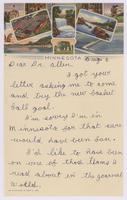 MINNESOTA
Aug 8
Dear Dr. Allen.
I got your
letter asking me to come
and try the new basket
ball goal.
I'm sorry I'm in
Minnesota for that sure
would have been fun.
I'd like to have been
on one of those teams I
read about in the journal
World.